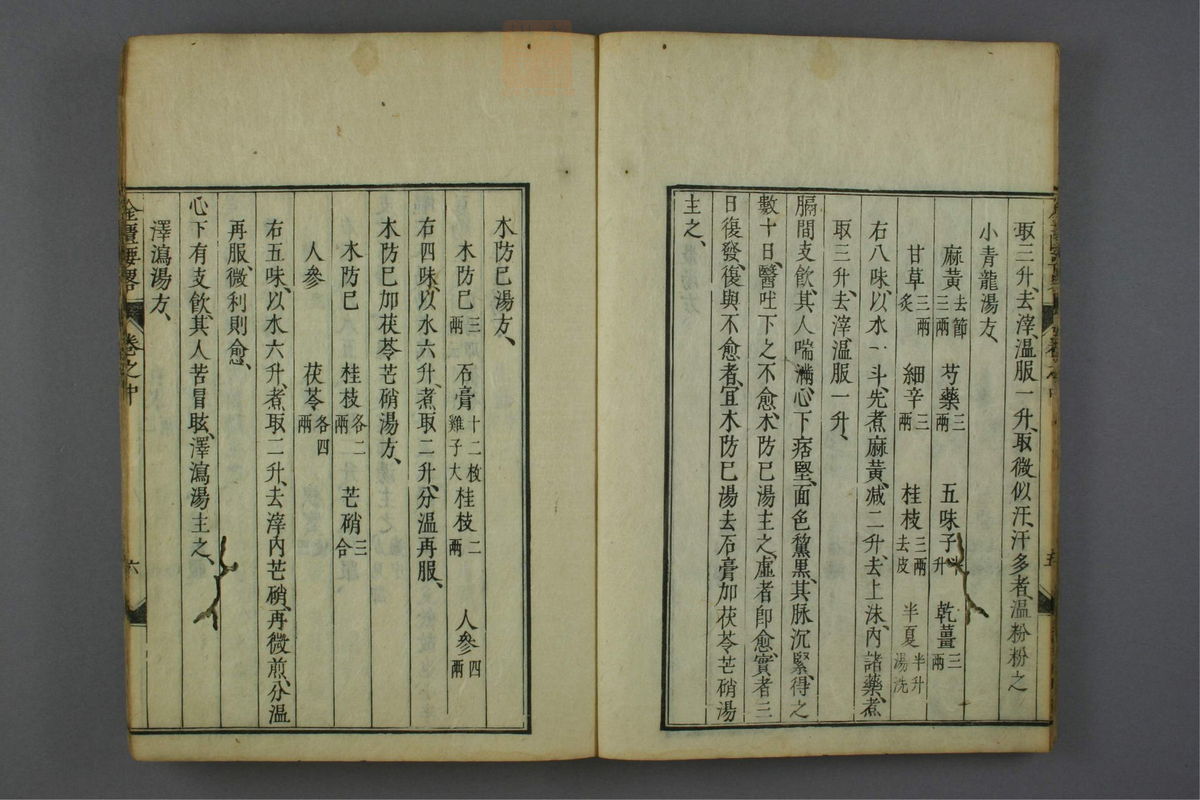 取三升、去滓、溫服一升、取微似汗、汗多者、溫粉粉之
小青龍湯方、
麻黃去節三兩 芍藥三兩 五味子半升 乾薑三兩
甘草三兩炙 細辛三兩 桂枝三兩去皮 半夏半升湯洗
右八味、以水一斗、先煮麻黃、減二升、去上沫、內諸藥、煮
取三升、去滓、溫服一升、
膈間支飮、其人喘滿、心下痞堅、面色黧黑、其脉沉緊、得之
數十日、醫吐下之不愈、木防已湯主之、虛者卽愈、實者三
日復發、復與不愈者、宜木防已湯去石膏加茯苓芒硝湯
主之、
木防已湯方、
木防已三兩 石膏十二枚雞子大 桂枝二兩 人參四兩
右四味、以水六升、煮、取二升、分溫再服、
木防已加茯苓芒硝湯方、
木防已 桂枝各二兩 芒硝三合
人參 茯苓各四兩
右五味、以水六升、煮、取二升、去滓、內芒硝、再微煎、分溫
再服、微利則愈、
心下有支飮、其人苦冒眩、澤瀉湯主之、
澤瀉湯方、
金匱要畧 卷之中 六